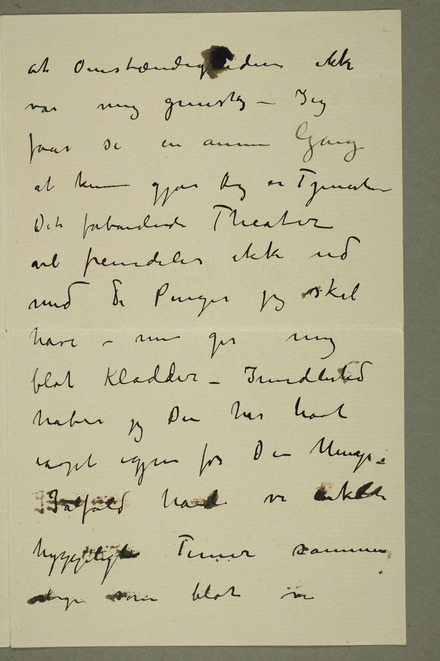 at Omstændigheden ikke
var mig gunstig – Jeg
faar se en anden Gang
at kunne gjøre Dig en Tjeneste
Det forbandede Theater
vil fremdeles ikke ud
med de Penger jeg skal
have – men gir mig
blot Kladder – Imidlertid
haber jeg Du har havt
noget igjen for Din Umage.
Ialfald havde vi enkelte
hyggelige Timer sammen
som blot vi